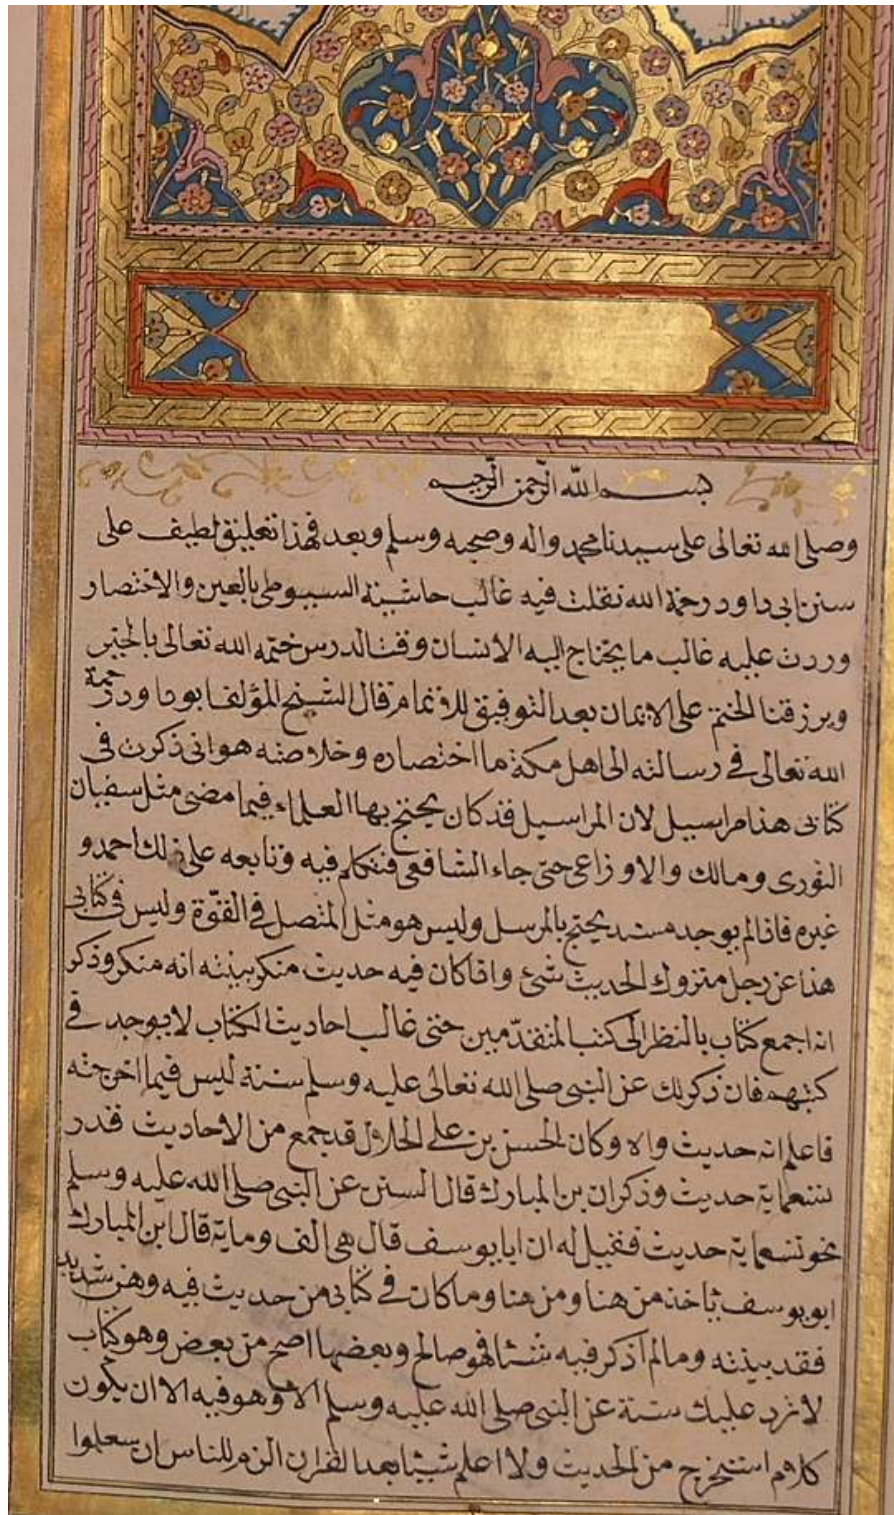 بسم الله الرحمن الرحيم
وصلى الله تعالى على سيدنا محمد واله وصحبه وسلم وبعد فهذا تعليق لطيف على
سنن ابى داود رحمة الله نقلت فيه غالب حاشية السيوطى بالعين والاختصار
وردت عليه غالب ما يحتاج اليه الانسان وقت الدرس ختمه الله تعالى بالخير
ويرزقنا الختم على الايمان بعد التوفيق للاتمام قال الشيخ المؤلف ابو داود رحمة
الله تعالى فى رسالته الى اهل مكة ما اختصاره وخلاصته هو انى ذكرت فى
كتابى هذا مراسيل لان المراسيل قد كان يحتج بها العلماء فيما مضى مثل سفيان
الثورى ومالك والاوزاعى حتى جاء الشافعى فتكلم فيه وتابعه على ذلك احمد و
غيره فاذا لم يوجد مسند يحتج بالمرسل وليس هو مثل المتصل فى القوّة وليس فى كتابى
هذا عن رجل متروك الحديث شئ واذا كان فيه حديث منكر بينته انه منكر وذكر
انه اجمع كتاب بالنظر الى كتب المتقدّمين حتى غالب احاديث الكتاب لا يوجد فى
كتبهم فان ذكر لك عن النبى صلى الله تعالى عليه وسلم سنة ليس فيما اخرجته
فاعلم انه حديث واه وكان الحسن بن على الخلال قد جمع من الاحاديث قدر
تسعماية حديث وذكر ان بن المبارك قال السنن عن النبى صلى الله عليه وسلم
نحو تسعماية حديث فقيل له ان ابا يوسف قال هى الف وماية قال ابن المبارك
ابو يوسف ياخذ من هنا ومن هنا وما كان فى كتابى من حديث فيه وهن شديد
فقد بينته وما لم اذكر فيه شئا فهو صالح وبعضها اصح من بعض وهو كتاب
لا ترد عليك سنة عن النبى صلى الله عليه وسلم الا وهو فيه الا ان يكون
كلام استخرج من الحديث ولا اعلم شيئا بعد القران الزم للناس ان